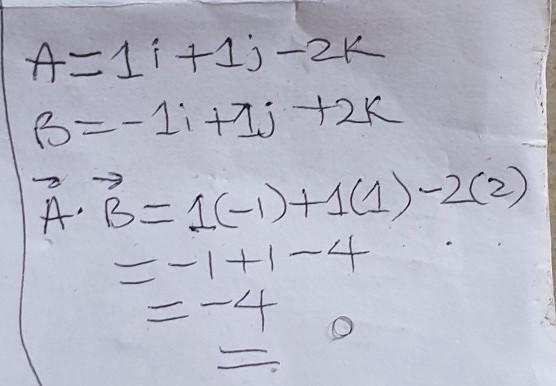 A=1i+1j-2K
B=-1i+1j+2K
A⃗·B⃗=1(-1)+1(1)-2(2)
=-1+1-4
=-4